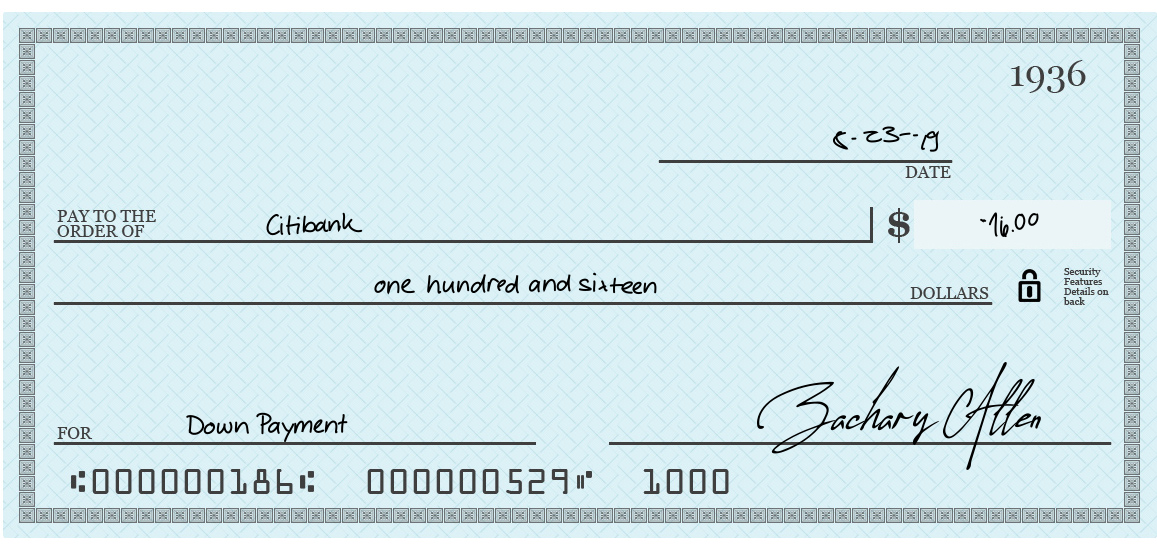 1936
DATE
PAY TO THE
ORDER OF Citibank $
one hundred and sixteen DOLLARS
Security
Features
Details on
back
FOR Down Payment Zachary Allen
⑆000000186⑆ 000000529⑈ 1000